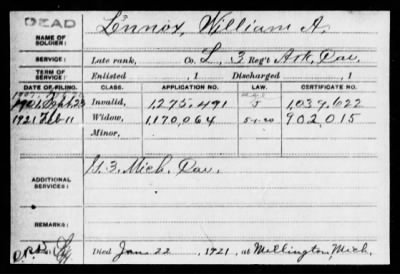 DEAD
NAME OF SOLDIER: Lennox, William A.
SERVICE: Late rank, Co. L, 3 Reg't Ark. Cav.
TERM OF SERVICE: Enlisted , 1 Discharged , 1
DATE OF FILING. CLASS. APPLICATION NO. LAW. CERTIFICATE NO.
1901 Sept. 23 Invalid, 1,275,491 1,039,622
1921 Feb 11 Widow, 1,170,064 902,015
Minor,
ADDITIONAL SERVICES: G. 3, Mich. Cav.
REMARKS:
Died Jan. 22, 1921, at Millington, Mich.